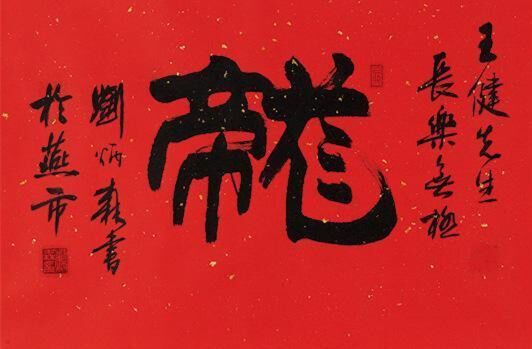 王健先生
長樂無極
龍
劉炳森書
於燕市